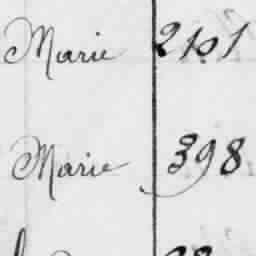 Marie 2101
Marie 398